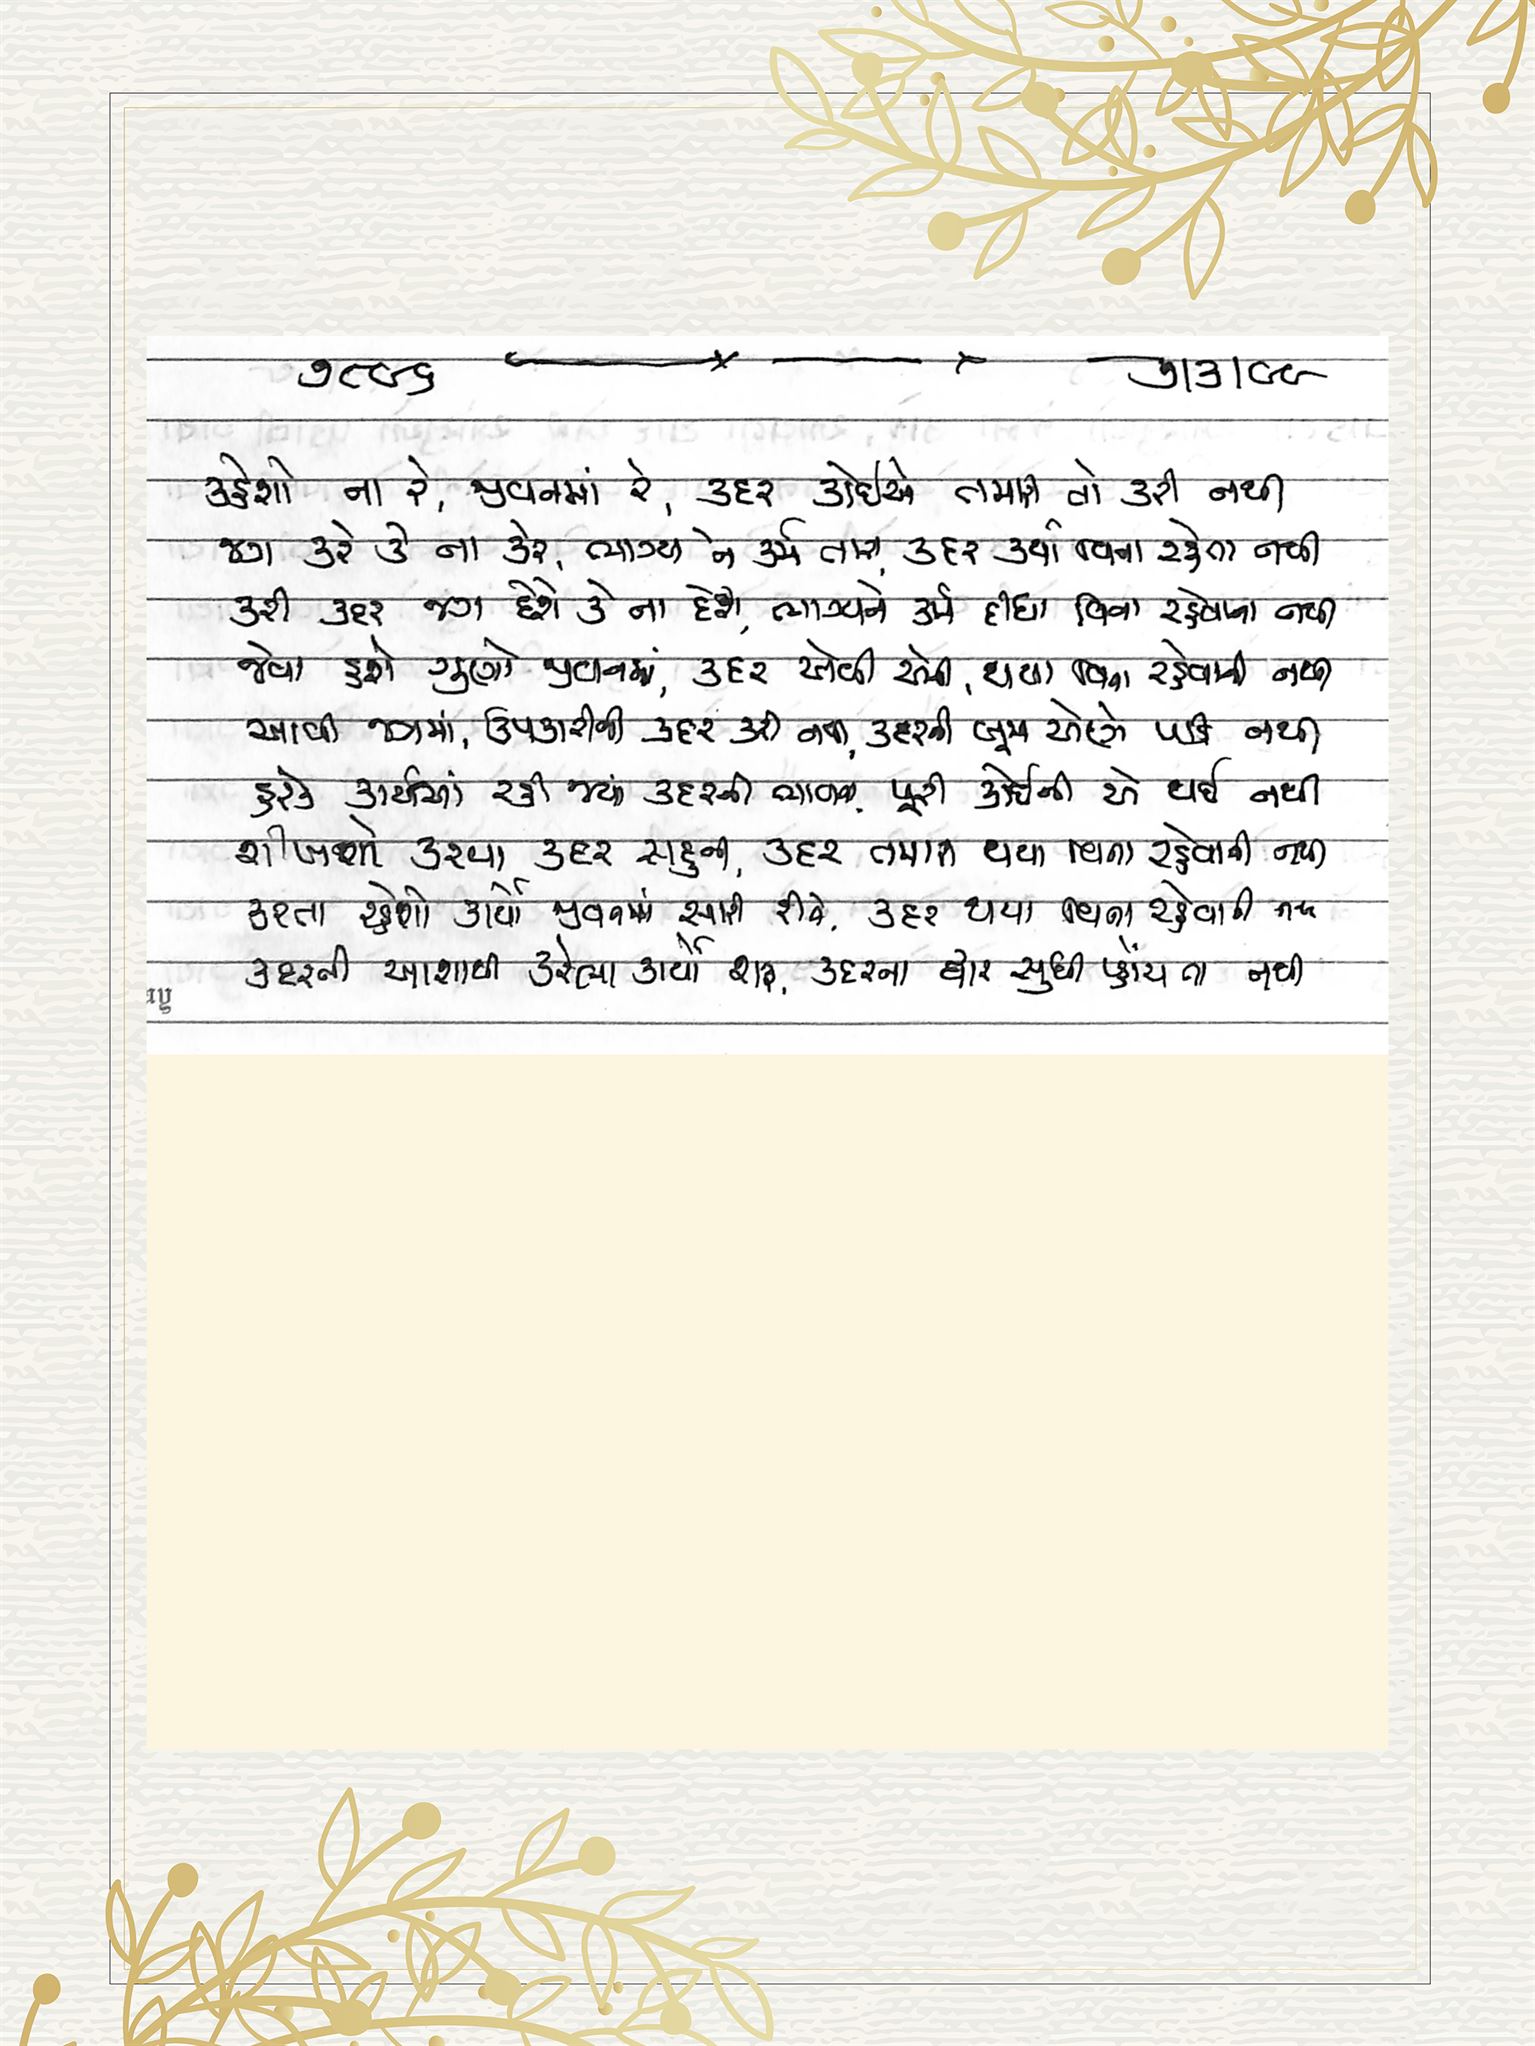 ૭૮૯૬ ૭|૩|૯૯
કહેશો ના રે, જીવનમાં રે, કદર કોઈએ તમારી તો કરી નથી
જગ કરે કે ના કરે, ભાગ્ય ને કર્મ તારા, કદર કર્યા વિના રહેતા નથી
કરી કદર જગ દેશે કે ના દેશે, ભાગ્યને કર્મ દીધા વિના રહેવાના નથી
જેવા હશે ગુણો જીવનમાં, કદર એવી એની, થયા વિના રહેવાની નથી
આવી જગમાં, ઉપકારીની કદર કરી નથી, કદરની બૂમ એણે પાડી નથી
હરેક કાર્યમાં રહી જ્યાં કદરની ભાવના, પૂરી કોઈની એ થઈ નથી
શીખજો કરવા કદર સહુની, કદર તમારી થયા વિના રહેવાની નથી
કરતા રહેશો કાર્યો જીવનમાં સારી રીતે, કદર થયા વિના રહેવાની નથી
કદરની આશાથી કરેલા કાર્યો શરૂ, કદરના દ્વાર સુધી પહોંચતા નથી
ay